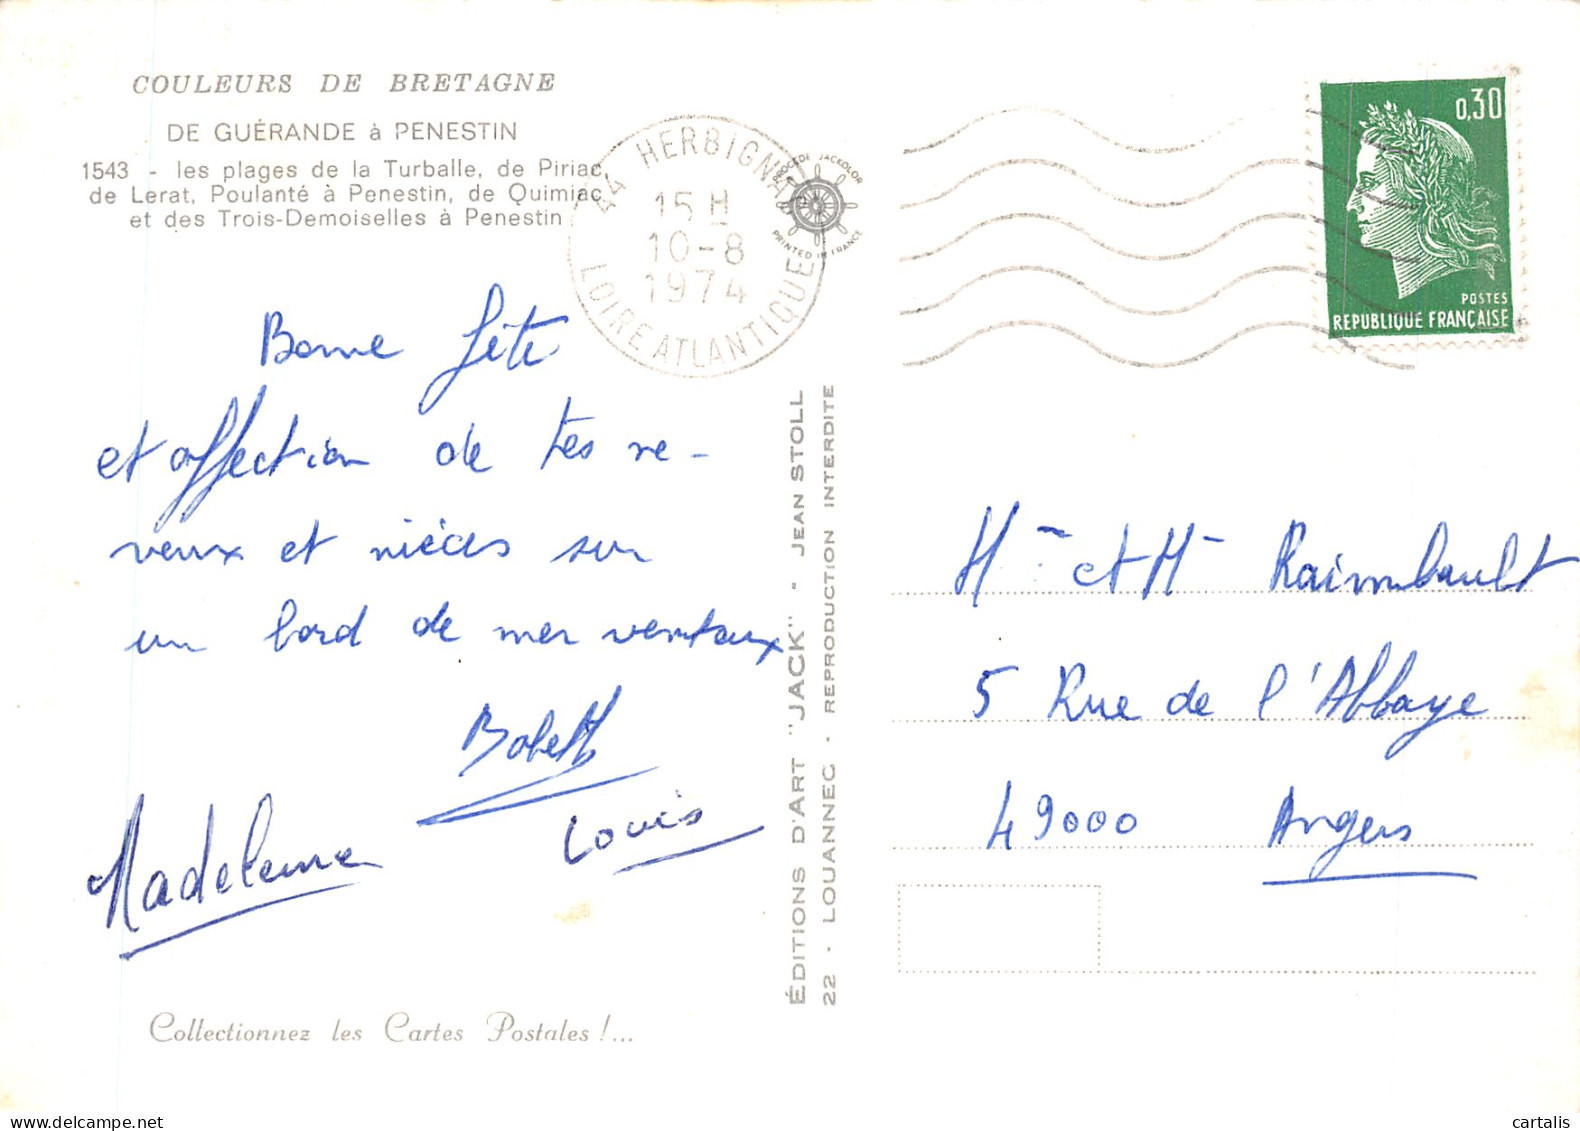 COULEURS DE BRETAGNE
DE GUÉRANDE à PENESTIN
1543 - les plages de la Turballe, de Piriac,
de Lerat, Poulanté à Penestin, de Quimiac
et des Trois-Demoiselles à Penestin
44 HERBIGNAC
15 H
10-8
1974
LOIRE ATLANTIQUE
PROCEDE JACKOLOR
PRINTED IN FRANCE
0,30
POSTES
REPUBLIQUE FRANÇAISE
Bonne fête
et affection de tes ne-
veux et nièces sur
un bord de mer venteux
Babeth
Louis
Madeleine
ÉDITIONS D'ART "JACK" - JEAN STOLL
22 - LOUANNEC - REPRODUCTION INTERDITE
Mme et Mr Raimbault
5 Rue de l'Abbaye
49000 Angers
Collectionnez les Cartes Postales !...
cartalis
www.delcampe.net